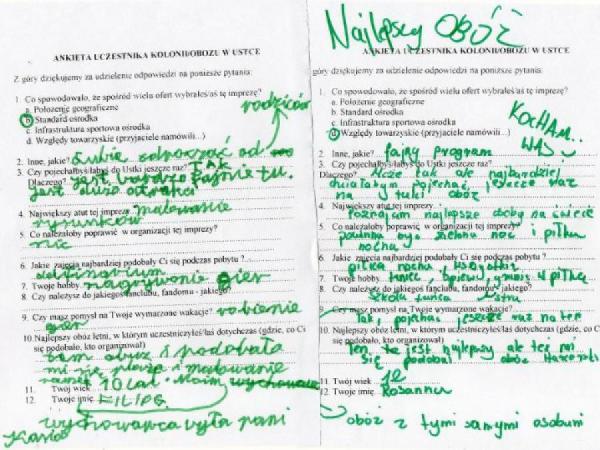 ANKIETA UCZESTNIKA KOLONII/OBOZU W USTCE
Z góry dziękujemy za udzielenie odpowiedzi na poniższe pytania:
1. Co spowodowało, że spośród wielu ofert wybrałeś/aś tę imprezę?
a. Położenie geograficzne
b. Standard ośrodka
c. Infrastruktura sportowa ośrodka
d. Względy towarzyskie (przyjaciele namówili...)
rodziców
2. Inne, jakie? Lubie odpocząć od
3. Czy pojechałbyś/łabyś do Ustki jeszcze raz? TAK
Dlaczego? jest bardzo fajnie tu.
jest dużo atrakcji
4. Największy atut tej imprezy malowanie
rysunków
5. Co należałoby poprawić w organizacji tej imprezy?
nic
6. Jakie zajęcia najbardziej podobały Ci się podczas pobytu?
7. Twoje hobby nagrywanie gier
8. Czy należysz do jakiegoś fanclubu, fandomu - jakiego?
9. Czy masz pomysł na Twoje wymarzone wakacje? robienie
gier
10. Najlepszy obóz letni, w którym uczestniczyłeś/łaś dotychczas (gdzie, co Ci
się podobało, kto organizował)
ten obuz i podobała
mi się plaża i malowanie
11. Twój wiek 10 lat
12. Twoje imię FILIP
wychowawca była pani
Kasia
Najlepszy OBÓZ
ANKIETA UCZESTNIKA KOLONII/OBOZU W USTCE
góry dziękujemy za udzielenie odpowiedzi na poniższe pytania:
1. Co spowodowało, że spośród wielu ofert wybrałeś/aś tę imprezę?
a. Położenie geograficzne
b. Standard ośrodka
c. Infrastruktura sportowa ośrodka
d. Względy towarzyskie (przyjaciele namówili...)
KOCHAM..
WAS
2. Inne, jakie? fajny program
3. Czy pojechałbyś/łabyś do Ustki jeszcze raz?
Dlaczego? Może tak ale najbardziej
chciałabym pojechać jeszcze raz
na obóz
4. Największy atut tej imprezy
Poznajam najlepsze osoby na świecie
5. Co należałoby poprawić w organizacji tej imprezy?
powinna być zielona noc i piłka
nożna
6. Jakie zajęcia najbardziej podobały Ci się podczas pobytu?
piłka nożna
7. Twoje hobby taniec, śpiew,
8. Czy należysz do jakiegoś fanclubu, fandomu - jakiego?
Szkoła tańca
9. Czy masz pomysł na Twoje wymarzone wakacje?
Tak, pojechać jeszcze raz na ten
10. Najlepszy obóz letni, w którym uczestniczyłeś/łaś dotychczas (gdzie, co Ci
się podobało, kto organizował)
Ten to jest najlepszy ale też mi
się podobał obóz
11. Twój wiek 12
12. Twoje imię Rosanna
obóz z tymi samymi osobami